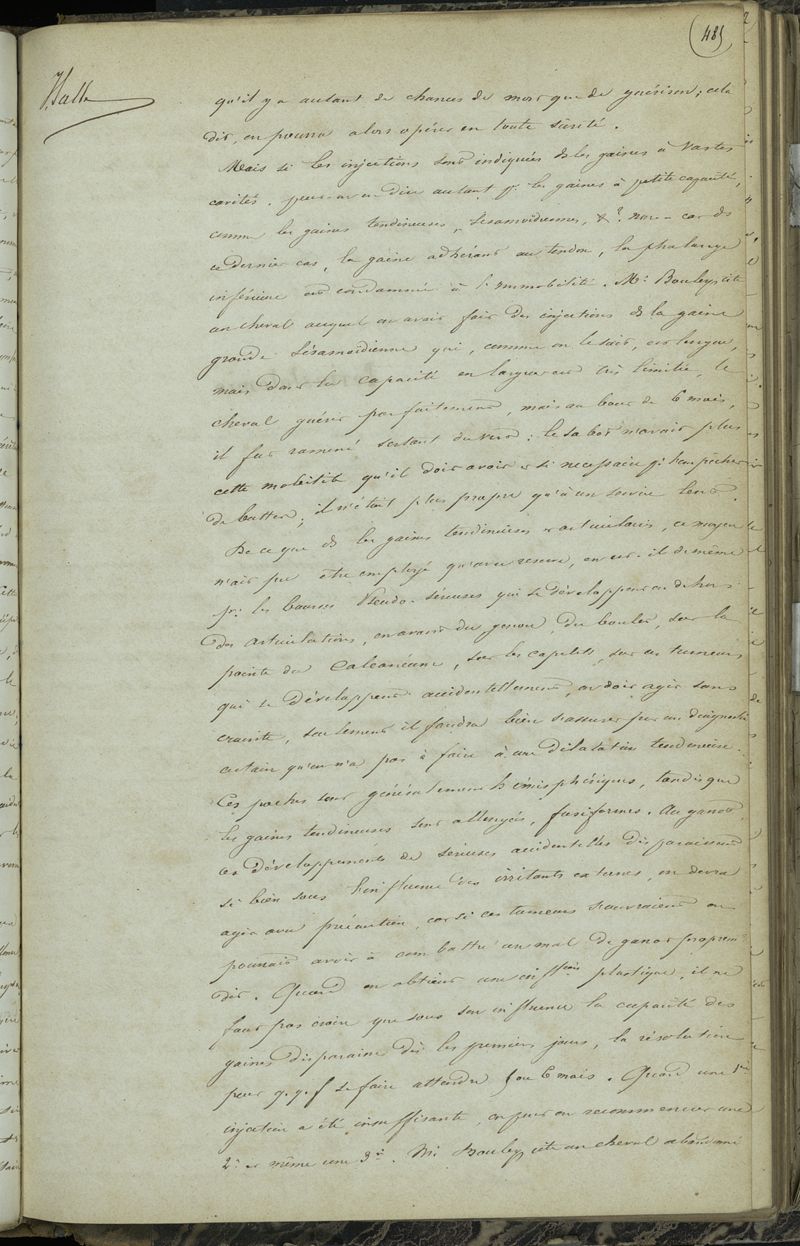 485
qu'il y a autant de chances de mort que de guérison; cela
dit, on pourra alors opérer en toute sûreté.
Mais si les injections sont indiquées ds les gaines à vastes
cavités, peut-on en dire autant pr les gaines à petite capacité,
comme les gaines tendineuses, sésamoïdiennes, &? non - car ds
ce dernier cas, la gaine adhérant au tendon, la phalange
inférieure est condamnée à l'immobilité. Mr Bouley cite
un cheval auquel on avait fait des injections ds la gaine
grande sésamoïdienne qui, comme on le sait, est longue,
mais dont la capacité en largeur est très limitée, le
cheval guérit parfaitement, mais au bout de 6 mois,
il fut ramené sortant du vert; le sabot n'avait plus
cette mobilité qu'il doit avoir et si nécessaire pr l'empêcher
de butter; il n'était plus propre qu'à un service lent.
De ce que ds les gaines tendineuses et articulaires, ce moyen
n'ait pu être employé qu'avec réserve, en est-il de même
pr les bourses pseudo-séreuses qui se développent en dehors
des articulations, en avant du genou, du boulet, sur la
pointe du calcanéum, sur les capelets, sur ces tumeurs
qui se développent accidentellement, on doit agir sans
crainte, seulement il faudra bien s'assurer par un diagnostic
certain qu'on n'a pas à faire à une dilatation tendineuse.
Ces poches sont généralement hémisphériques, tandis que
les gaines tendineuses sont allongées, fusiformes. Au garrot
ces développements de séreuses accidentelles disparaissent
si bien sous l'influence des irritants externes, on devra
agir avec précaution, car si ces tumeurs s'ouvraient on
pourrait avoir à combattre un mal de garrot proprement
dit. Quand on obtient une infltion plastique, il ne
faut pas croire que sous son influence la capacité des
gaines disparaisse dès les premiers jours, la résolution
peut q.q.f. se faire attendre 5 ou 6 mois. Quand une 1ère
injection a été insuffisante, on peut en recommencer une
2e et même une 3e. Mr Bouley cite un cheval abandonné